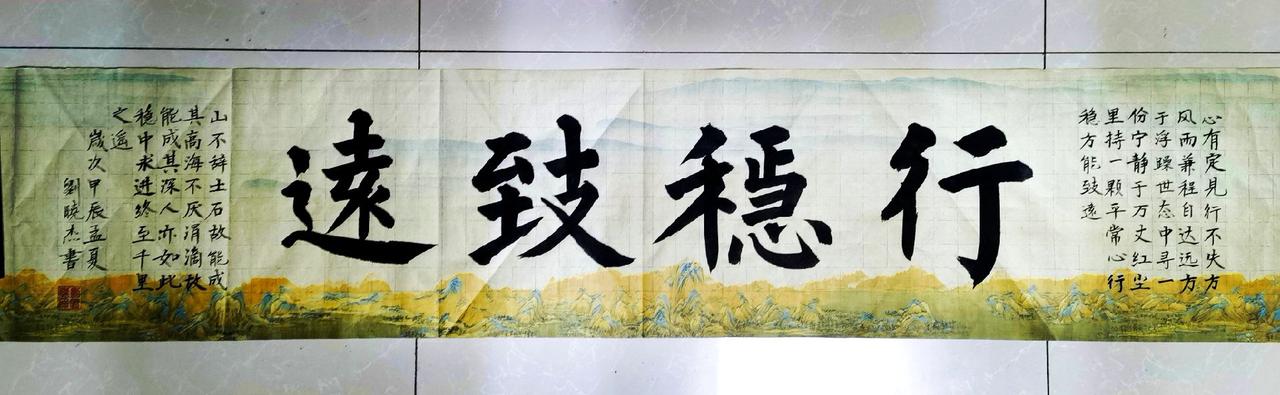 心有定见行不失方
风雨兼程自达远方
于浮躁世态中寻一
份宁静于万丈红尘
里持一颗平常心行
稳方能致遠
行穩致遠
山不辞土石故能成
其高海不厌涓滴故
能成其深人亦如此
稳中求进终至千里
之遥
歲次甲辰孟夏
劉晓杰書